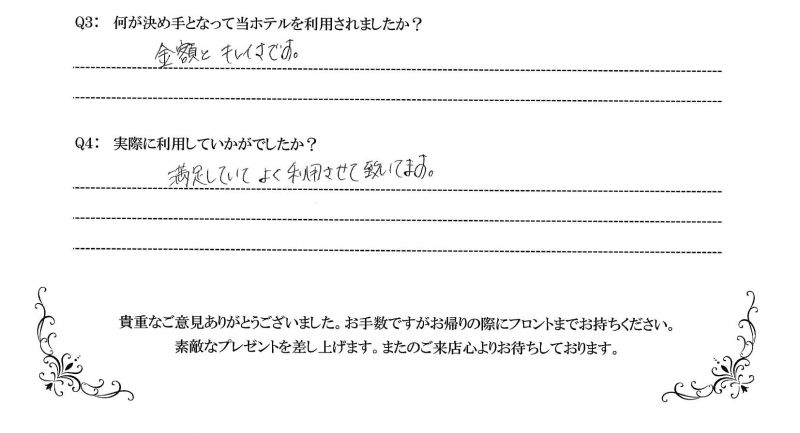 Q3： 何が決め手となって当ホテルを利用されましたか？
金額と キレイさです。
Q4： 実際に利用していかがでしたか？
満足していて よく利用させて致いてます。
貴重なご意見ありがとうございました。お手数ですがお帰りの際にフロントまでお持ちください。
素敵なプレゼントを差し上げます。またのご来店心よりお待ちしております。